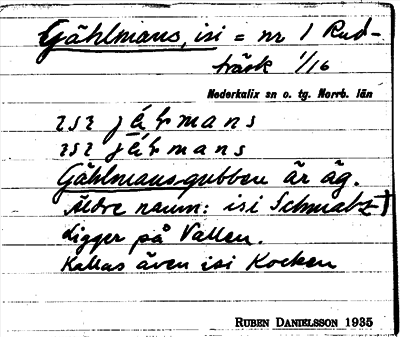 Gählmans, isi = nr 1 Rud-
träsk 1/16
Nederkalix sn o. tg. Norrb. län
ɪsɪ jä́ɫmans
ɪsɪ jä́ɫmans
Gählmans-gubben är äg.
Äldre namn: isi Schmatz
Ligger på Vallen.
Kallas även isi Kocken
RUBEN DANIELSSON 1935